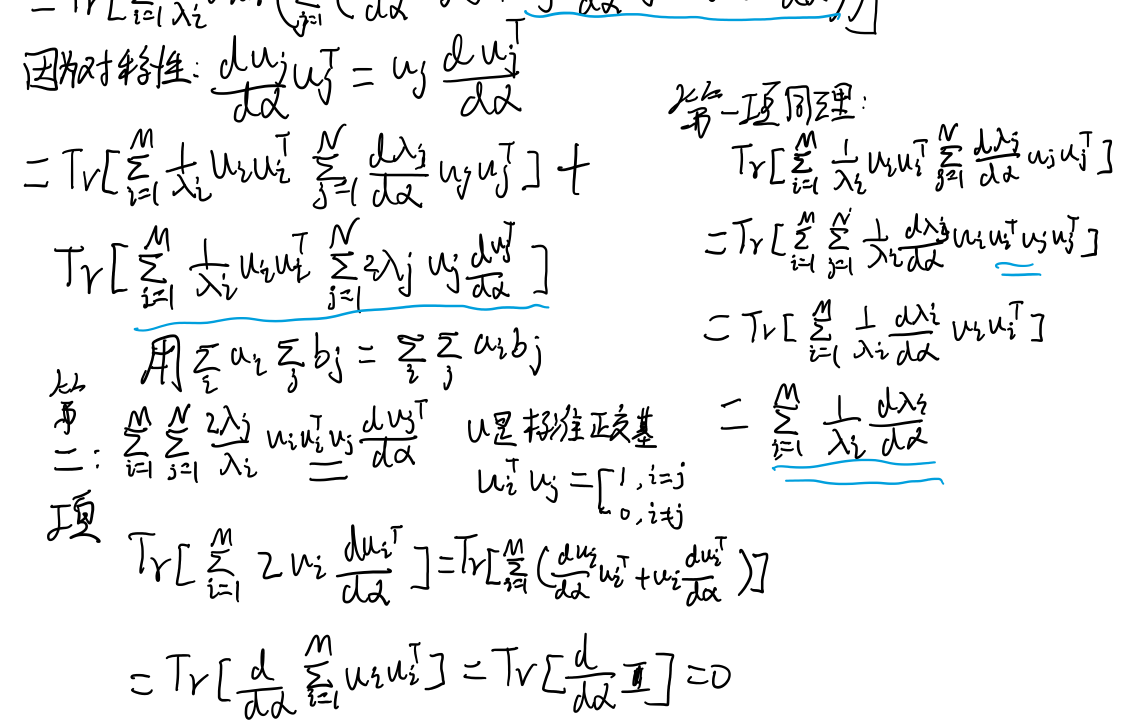 = Tr[∑_{i=1} 1/λ_i (∑_{j=1} ( dα dα )]
因为对称性: du_j/dα u_j^T = u_j du_j^T/dα
= Tr[∑_{i=1}^M 1/λ_i u_i u_i^T ∑_{j=1}^N dλ_j/dα u_j u_j^T] +
Tr[∑_{i=1}^M 1/λ_i u_i u_i^T ∑_{j=1}^N 2λ_j u_j du_j^T/dα]
用 ∑_i a_i ∑_j b_j = ∑_i ∑_j a_i b_j
第二项: ∑_{i=1}^M ∑_{j=1}^N 2λ_j/λ_i u_i u_i^T u_j du_j^T/dα
u是标准正交基
u_i^T u_j = [1, i=j
0, i≠j
Tr[∑_{i=1}^M 2 u_i du_i^T/dα] = Tr[∑_{i=1}^M (du_i/dα u_i^T + u_i du_i^T/dα)]
= Tr[d/dα ∑_{i=1}^M u_i u_i^T] = Tr[d/dα I] = 0
第一项同理:
Tr[∑_{i=1}^M 1/λ_i u_i u_i^T ∑_{j=1}^N dλ_j/dα u_j u_j^T]
= Tr[∑_{i=1}^M ∑_{j=1}^N 1/λ_i dλ_j/dα u_i u_i^T u_j u_j^T]
= Tr[∑_{i=1}^M 1/λ_i dλ_i/dα u_i u_i^T]
= ∑_{i=1}^M 1/λ_i dλ_i/dα